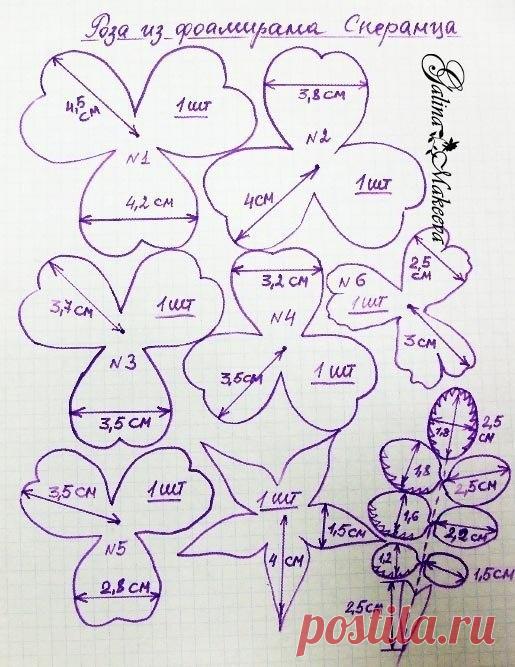 Роза из фоамирана Сперанца
Galina Makeeva
4,5 см
1 шт
N1
4,2 см
3,8 см
N2
4 см
1 шт
3,7 см
1 шт
N3
3,5 см
3,2 см
N4
3,5 см
1 шт
N6
1 шт
2,5 см
3 см
3,5 см
1 шт
N5
2,8 см
1 шт
1,5 см
4 см
1,8
2,5 см
1,8
2,5 см
1,6
2,2 см
1,2
1,5 см
2,5 см
postila.ru